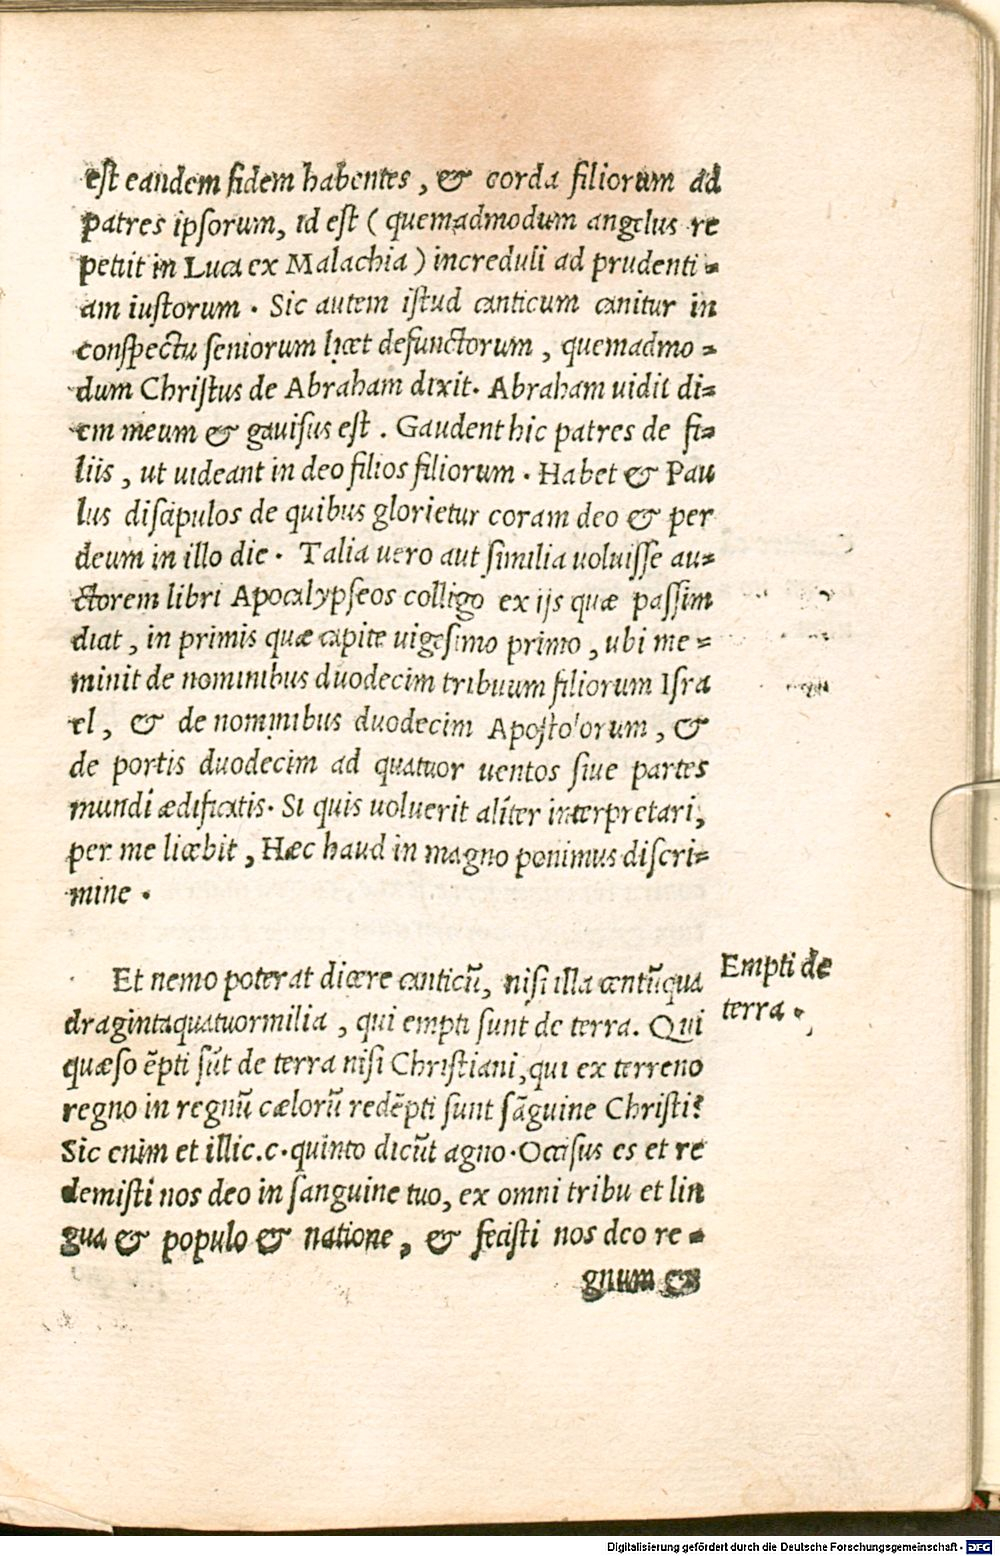 est eandem fidem habentes, & corda filiorum ad
patres ipsorum, id est (quemadmodum angelus re
petiit in Luca ex Malachia) increduli ad prudenti-
am iustorum. Sic autem istud canticum canitur in
conspectu seniorum licet defunctorum, quemadmo-
dum Christus de Abraham dixit. Abraham uidit di-
em meum & gauisus est. Gaudent hic patres de fi-
liis, ut uideant in deo filios filiorum. Habet & Pau
lus discipulos de quibus glorietur coram deo & per
deum in illo die. Talia uero aut similia uoluisse au-
ctorem libri Apocalypseos colligo ex ijs quæ passim
dicit, in primis quæ capite uigesimo primo, ubi me-
minit de nominibus duodecim tribuum filiorum Isra
el, & de nominibus duodecim Apostolorum, &
de portis duodecim ad quatuor uentos siue partes
mundi ædificatis. Si quis uoluerit aliter interpretari,
per me licebit, Hæc haud in magno ponimus discri-
mine.
Et nemo poterat dicere canticū, nisi illa centūqua
dragintaquatuormilia, qui empti sunt de terra. Qui
quæso ēpti sūt de terra nisi Christiani, qui ex terreno
regno in regnū cælorū redēpti sunt sāguine Christi?
Sic enim et illic.c.quinto dicūt agno. Occisus es et re
demisti nos deo in sanguine tuo, ex omni tribu et lin
gua & populo & natione, & fecisti nos deo re-
gnum &
Empti de
terra.
Digitalisierung gefördert durch die Deutsche Forschungsgemeinschaft - DFG